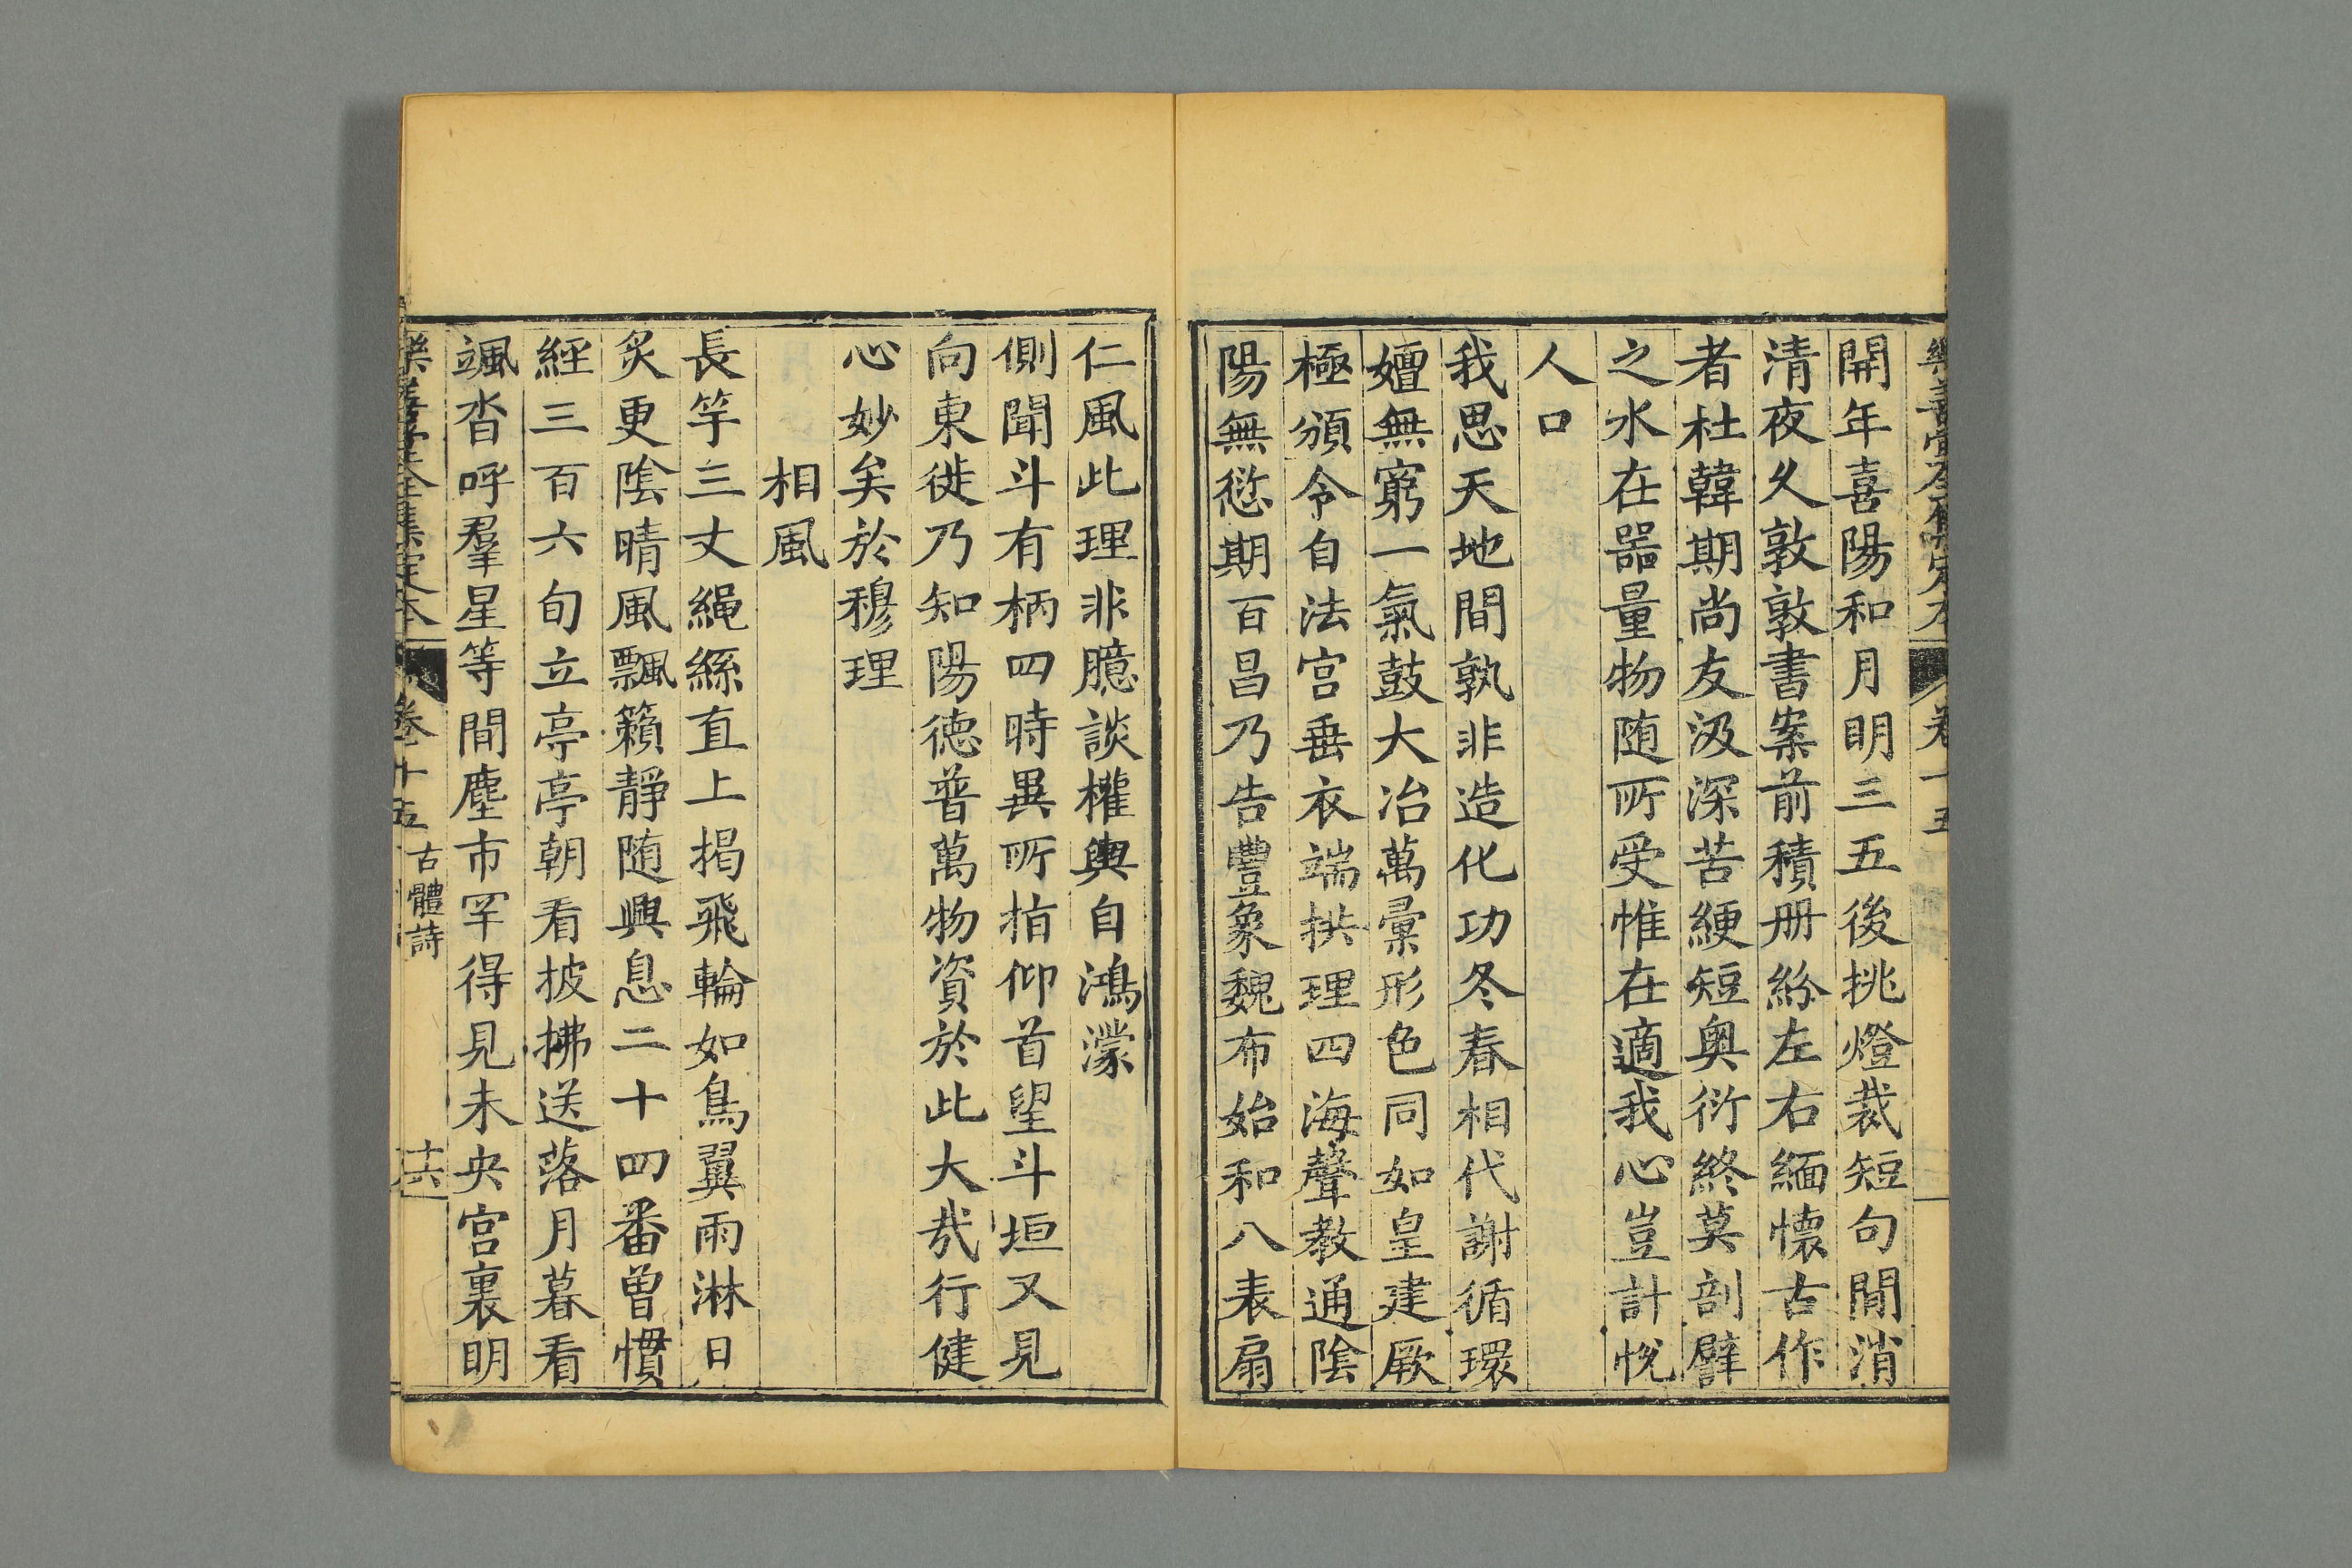 樂善堂全集定本 卷十五
開年喜陽和月明三五後挑燈裁短句間消
清夜久敦敦書案前積册紛左右緬懐古作
者杜韓期尚友汲深苦綆短奥衍終莫剖譬
之水在噐量物随所受惟在適我心豈計恱
人口
我思天地間孰非造化功冬春相代謝循環
嬗無窮一氣鼓大冶萬彚形色同如皇建厥
極頒令自法宫垂衣端拱理四海聲教通隂
陽無愆期百昌乃告豐象魏布始和八表扇
仁風此理非臆談權輿自鴻濛
側聞斗有柄四時異所指仰首望斗垣又見
向東徙乃知陽德普萬物資於此大哉行健
心妙矣於穆理
相風
長竿三丈繩絲直上揭飛輪如鳥翼雨淋日
炙更隂晴風飄籟靜随興息二十四番曾慣
經三百六旬立亭亭朝看披拂送落月暮看
颯沓呼羣星等間塵市罕得見未央宫裏明
樂善堂全集定本 卷十五 古體詩 十六